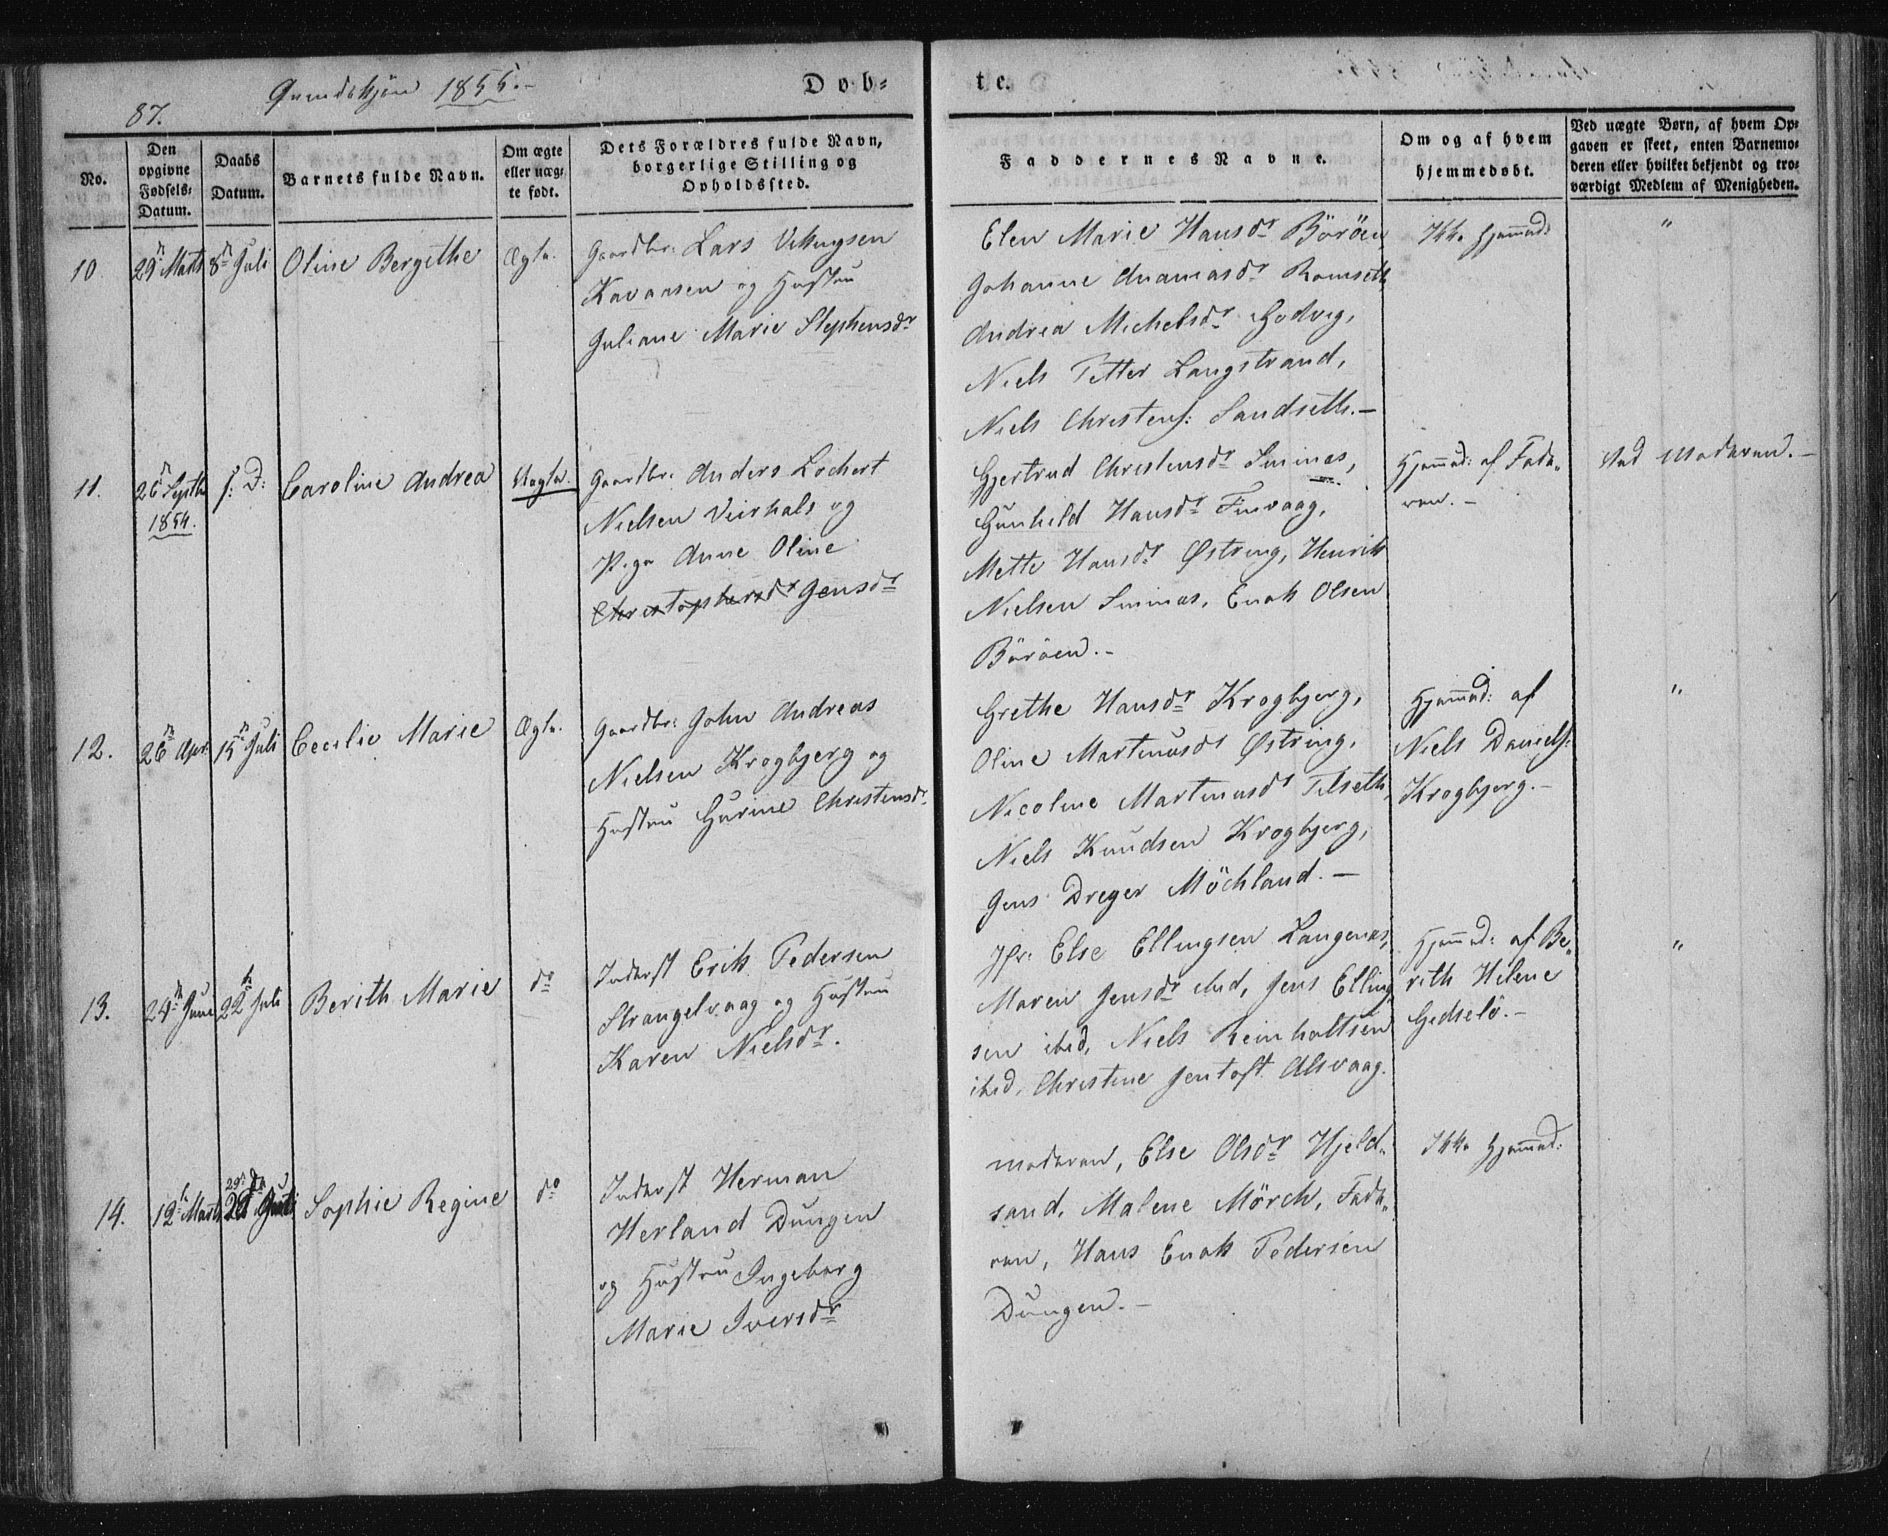 87.
Qvindekjøn 1855.-
Døb-
te.
No.
Den opgivne Fødsels-Datum.
Daabs Datum.
Barnets fulde Navn.
Om ægte eller uægte født.
Dets Forældres fulde Navn, borgerlige Stilling og Opholdssted.
Faddernes Navne.
Om og af hvem hjemmedøbt.
Ved uægte Børn, af hvem Op-
gaven er skeet, enten Barnemo-
deren eller hvilket bekjendt og tro-
værdigt Medlem af Menigheden.
10.
29n Marts
8n Juli
Oline Bergithe
Ægte.
Gaardbr: Lars
Kavaasen og Hustru
Juliane Marie Stephensdr
Elen Marie Hansdr Böröen
Johanne Ananiasdr Romseth
Andrea Michelsdr Hodvig,
Niels Petter Langstrand,
Niels Christens: Sandseth.-
Ikke hjemmed:
"
11.
26n Septbr
1854.
s: D:
Caroline Andrea
Uægte.
Gaardbr: Anders Lochert
Nielsen Veirhals og
Pige Anne Oline
Christophersdr Jensdr
Gjertrud Christensdr Sminas,
Gunhild Hansdr Finvaag,
Mette Hansdr Østring, Henrik
Nielsen Sminas, Enok Olsen
Böröen.-
Hjemmed: af Fade-
ren.-
Ved Moderen.-
12.
26n Apr.
15n Juli
Cecilie Marie
Ægte.
Gaardbr: John Andreas
Nielsen Krogbjerg og
Hustru Gurine Christensdr
Grethe Hansdr Krogbjerg,
Oline Martinusdr Østring,
Nicoline Martinusdr Tilseth,
Niels Knudsen Krogbjerg,
Jens Dreyer Möckland.-
Hjemmed: af
Niels Daniels:
Krogbjerg.-
"
13.
24n Juni
22n Juli
Berith Marie
do
Inderst Erik Pedersen
Strangelvaag og Hustru
Karen Nielsdr.
Jfr: Else Ellingsen Langenes,
Maren Jensdr ibid, Jens Elling-
sen ibid, Niels Reinholtsen
ibid, Christine Jentoft Alsvaag.
Hjemmed: af Be-
rith Helene
Gedselö.-
"
14.
12n Marts
29n
Juli
Sophie Regine
do
Inderst Herman
Herland Dungen
og Hustru Ingeborg
Marie Iversdr
Moderen, Else Olsdr Hjeld-
sand, Malene Mörch, Fade-
ren, Hans Enok Pedersen
Dungen.-
Ikke hjemmed: